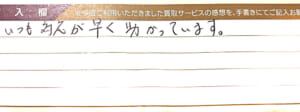 入 欄
ご利用いただきました買取サービスの感想を、手書きにてご記入お
いつも対応が早く助かっています。